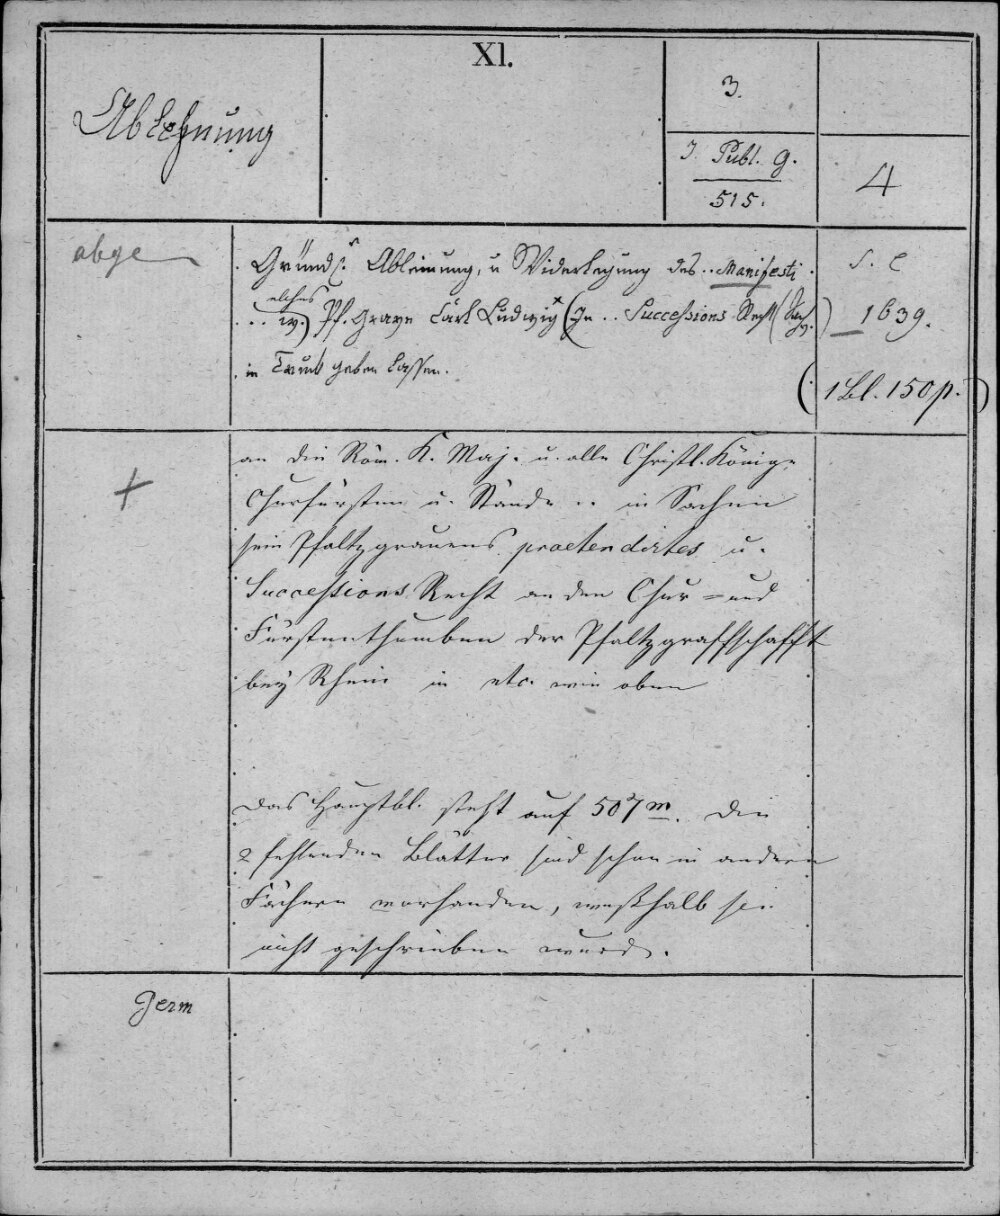 XI.
Ablehnung
3.
J. Publ. g.
515.
4
abge
Gründl. Ableinung, u Widerlegung des .. Manifesti
S. l
.. welches Pf. Grave Carl Ludwig (In .. Successions Recht
1639.
in Truck geben lassen.
(1 Bl. 150 p.)
+
an die Röm. K. Maj. u. alle Christl. Könige
Churfürsten u. Stände .. in Sachen
sein Pfaltzgrauens praetendirtes u.
Successions Recht an den Chur = und
Fürstenthumben der Pfaltzgraffschafft
bey Rhein in etc. wie oben
Das Hauptbl. steht auf 507 m. Die
2 fehlenden Blätter sind schon in andern
Fächern vorhanden, weßhalb sie
nicht geschrieben wurd.
Germ